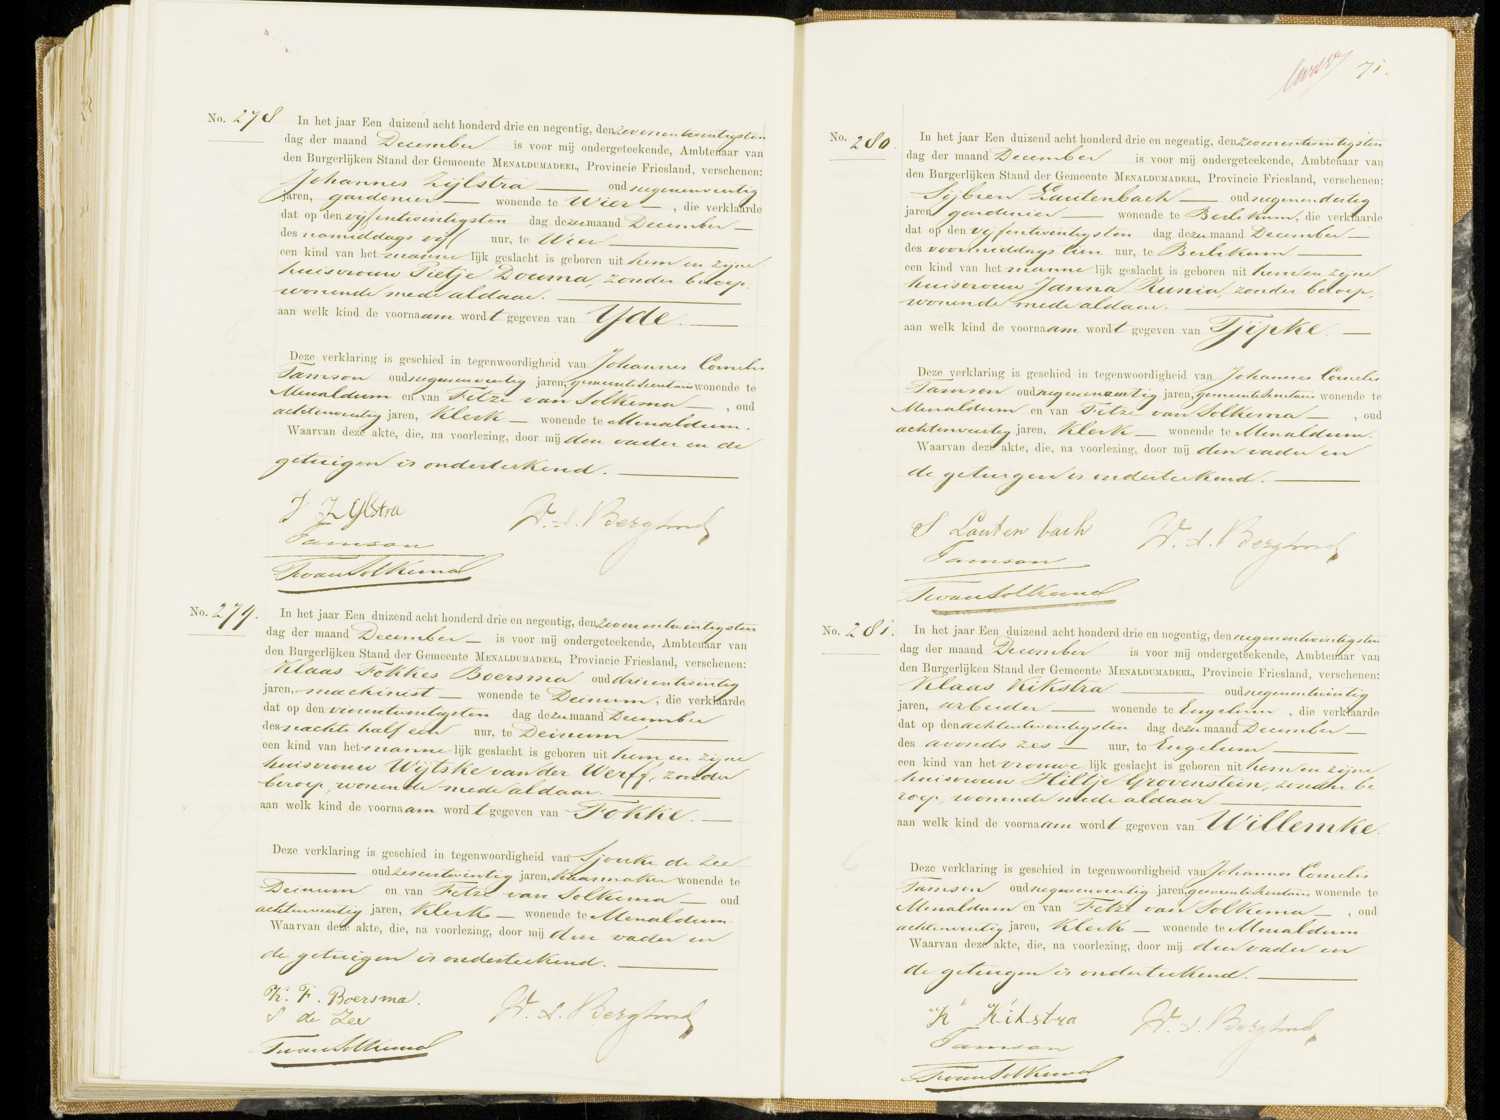 No. 278
In het jaar Een duizend acht honderd drie en negentig, den zevenentwintigsten
dag der maand December is voor mij ondergeteekende, Ambtenaar van
den Burgerlijken Stand der Gemeente MENALDUMADEEL, Provincie Friesland, verschenen:
Johannes Zijlstra oud negenenveertig
jaren, gardenier wonende te Wier, die verklaarde
dat op den vijfentwintigsten dag dezer maand December
des namiddags vijf uur, te Wier
een kind van het manne lijk geslacht is geboren uit hem en zijne
huisvrouw Pietje Douma, zonder beroep,
wonende mede aldaar.
aan welk kind de voornaam wordt gegeven van Yde.
Deze verklaring is geschied in tegenwoordigheid van Johannes Cornelis
Tamson oud negenenveertig jaren, gemeentesecretaris wonende te
Menaldum en van Fetze van Solkema, oud
achtenveertig jaren, Klerk wonende te Menaldum.
Waarvan deze akte, die, na voorlezing, door mij den vader en de
getuigen is onderteekend.
J Zijlstra
Tamson
FvanSolkema
No. 279.
In het jaar Een duizend acht honderd drie en negentig, den zevenentwintigsten
dag der maand December is voor mij ondergeteekende, Ambtenaar van
den Burgerlijken Stand der Gemeente MENALDUMADEEL, Provincie Friesland, verschenen:
Klaas Fokkes Boersma oud drieentwintig
jaren, machinist wonende te Deinum, die verklaarde
dat op den vierentwintigsten dag dezer maand December
des nachts half een uur, te Deinum
een kind van het manne lijk geslacht is geboren uit hem en zijne
huisvrouw Wijtske van der Werff, zonder
beroep, wonende mede aldaar.
aan welk kind de voornaam wordt gegeven van Fokke.
Deze verklaring is geschied in tegenwoordigheid van Sjouke de Zee
oud zesentwintig jaren, kaasmaker wonende te
Deinum en van Fetze van Solkema oud
achtenveertig jaren, Klerk wonende te Menaldum.
Waarvan deze akte, die, na voorlezing, door mij den vader en
de getuigen is onderteekend.
K. F. Boersma.
S de Zee
FvanSolkema
71.
No. 280.
In het jaar Een duizend acht honderd drie en negentig, den zevenentwintigsten
dag der maand December is voor mij ondergeteekende, Ambtenaar van
den Burgerlijken Stand der Gemeente MENALDUMADEEL, Provincie Friesland, verschenen:
Sijbren Lautenbach oud negenendertig
jaren gardenier wonende te Berlikum, die verklaarde
dat op den vijfentwintigsten dag dezer maand December
des voormiddags tien uur, te Berlikum
een kind van het manne lijk geslacht is geboren uit hem en zijne
huisvrouw Janna Runia, zonder beroep,
wonende mede aldaar.
aan welk kind de voornaam wordt gegeven van Tjipke.
Deze verklaring is geschied in tegenwoordigheid van Johannes Cornelis
Tamson oud negenenveertig jaren, gemeentesecretaris wonende te
Menaldum en van Fetze van Solkema, oud
achtenveertig jaren, Klerk wonende te Menaldum.
Waarvan deze akte, die, na voorlezing, door mij den vader en
de getuigen is onderteekend.
S Lautenbach
Tamson
FvanSolkema
No. 281.
In het jaar Een duizend acht honderd drie en negentig, den negenentwintigsten
dag der maand December is voor mij ondergeteekende, Ambtenaar van
den Burgerlijken Stand der Gemeente MENALDUMADEEL, Provincie Friesland, verschenen:
Klaas Kikstra oud negenentwintig
jaren, arbeider wonende te Engelum, die verklaarde
dat op den achtentwintigsten dag dezer maand December
des avonds zes uur, te Engelum
een kind van het vrouwe lijk geslacht is geboren uit hem en zijne
huisvrouw Hiltje Grovenstein, zonder be
roep, wonende mede aldaar
aan welk kind de voornaam wordt gegeven van Willemke.
Deze verklaring is geschied in tegenwoordigheid van Johannes Cornelis
Tamson oud negenenveertig jaren, gemeentesecretaris wonende te
Menaldum en van Fetze van Solkema, oud
achtenveertig jaren, Klerk wonende te Menaldum
Waarvan deze akte, die, na voorlezing, door mij den vader en
de getuigen is onderteekend.
K Kikstra
Tamson
FvanSolkema